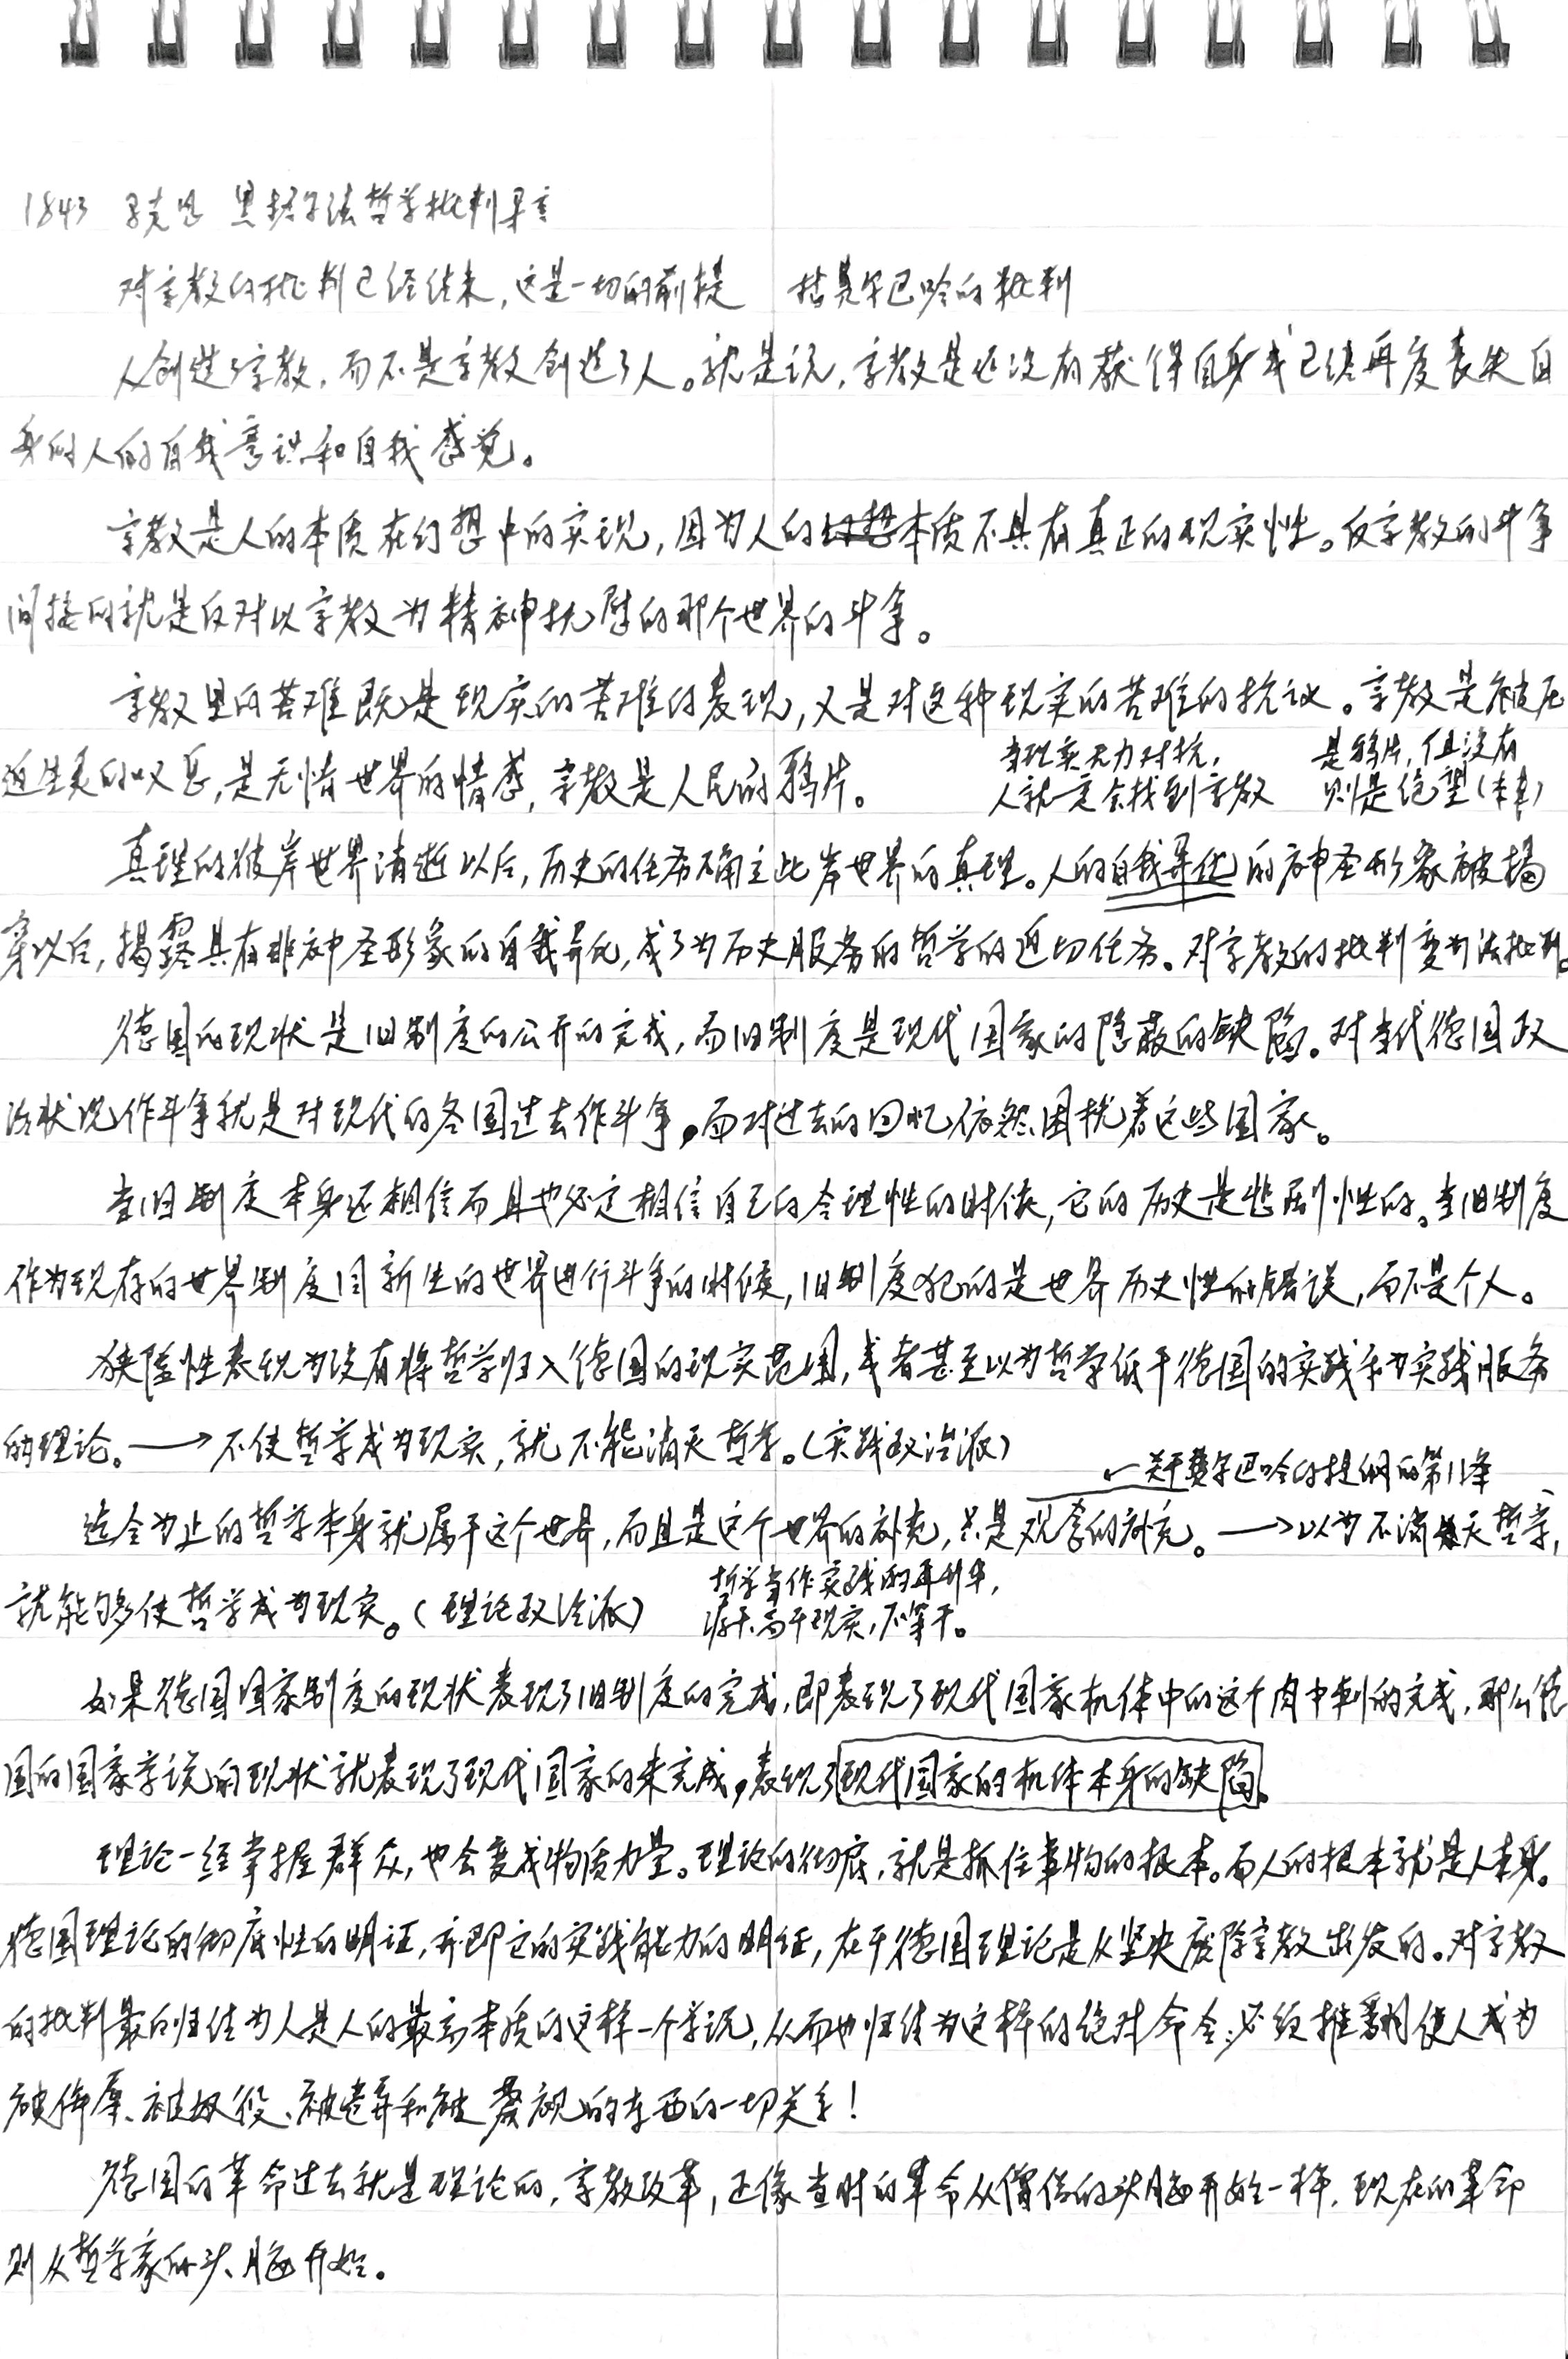 1843 马克思 黑格尔法哲学批判导言
对宗教的批判已经结束,这是一切的前提 指费尔巴哈的批判
人创造了宗教,而不是宗教创造了人。就是说,宗教是还没有获得自身或已经再度丧失自
身的人的自我意识和自我感觉。
宗教是人的本质在幻想中的实现,因为人的本质不具有真正的现实性。反宗教的斗争
间接的就是反对以宗教为精神抚慰的那个世界的斗争。
宗教里的苦难既是现实的苦难的表现,又是对这种现实的苦难的抗议。宗教是被压
迫生灵的叹息,是无情世界的情感,宗教是人民的鸦片。
当现实无力对抗,
人就一定会找到宗教
是鸦片,但没有
则是绝望(本真)
真理的彼岸世界消逝以后,历史的任务确立此岸世界的真理。人的自我异化的神圣形象被揭
穿以后,揭露具有非神圣形象的自我异化,成了为历史服务的哲学的迫切任务。对宗教的批判变为法批判。
德国的现状是旧制度的公开的完成,而旧制度是现代国家的隐蔽的缺陷。对当代德国政
治状况作斗争就是对现代的各国过去作斗争,而对过去的回忆依然困扰着这些国家。
当旧制度本身还相信而且也必定相信自己的合理性的时候,它的历史是悲剧性的。当旧制度
作为现存的世界制度同新生的世界进行斗争的时候,旧制度犯的是世界历史性的错误,而不是个人。
狭隘性表现为没有将哲学归入德国的现实范围,或者甚至以为哲学低于德国的实践和为实践服务
的理论。→不使哲学成为现实,就不能消灭哲学。(实践政治派)
←关于费尔巴哈的提纲的第11条
迄今为止的哲学本身就属于这个世界,而且是这个世界的补充,只是观念的补充。→以为不消灭哲学,
就能够使哲学成为现实。(理论政治派)
哲学当作实践的再升华,
源于、高于现实,不等于。
如果德国国家制度的现状表现了旧制度的完成,即表现了现代国家机体中的这个肉中刺的完成,那么德
国的国家学说的现状就表现了现代国家的未完成,表现了现代国家的机体本身的缺陷。
理论一经掌握群众,也会变成物质力量。理论的彻底,就是抓住事物的根本。而人的根本就是人本身。
德国理论的彻底性的明证,亦即它的实践能力的明证,在于德国理论是从坚决废除宗教出发的。对宗教
的批判最后归结为人是人的最高本质的这样一个学说,从而也归结为这样的绝对命令:必须推翻使人成为
被侮辱、被奴役、被遗弃和被蔑视的东西的一切关系!
德国的革命过去就是理论的,宗教改革,正像当时的革命从僧侣的头脑开始一样,现在的革命
则从哲学家的头脑开始。